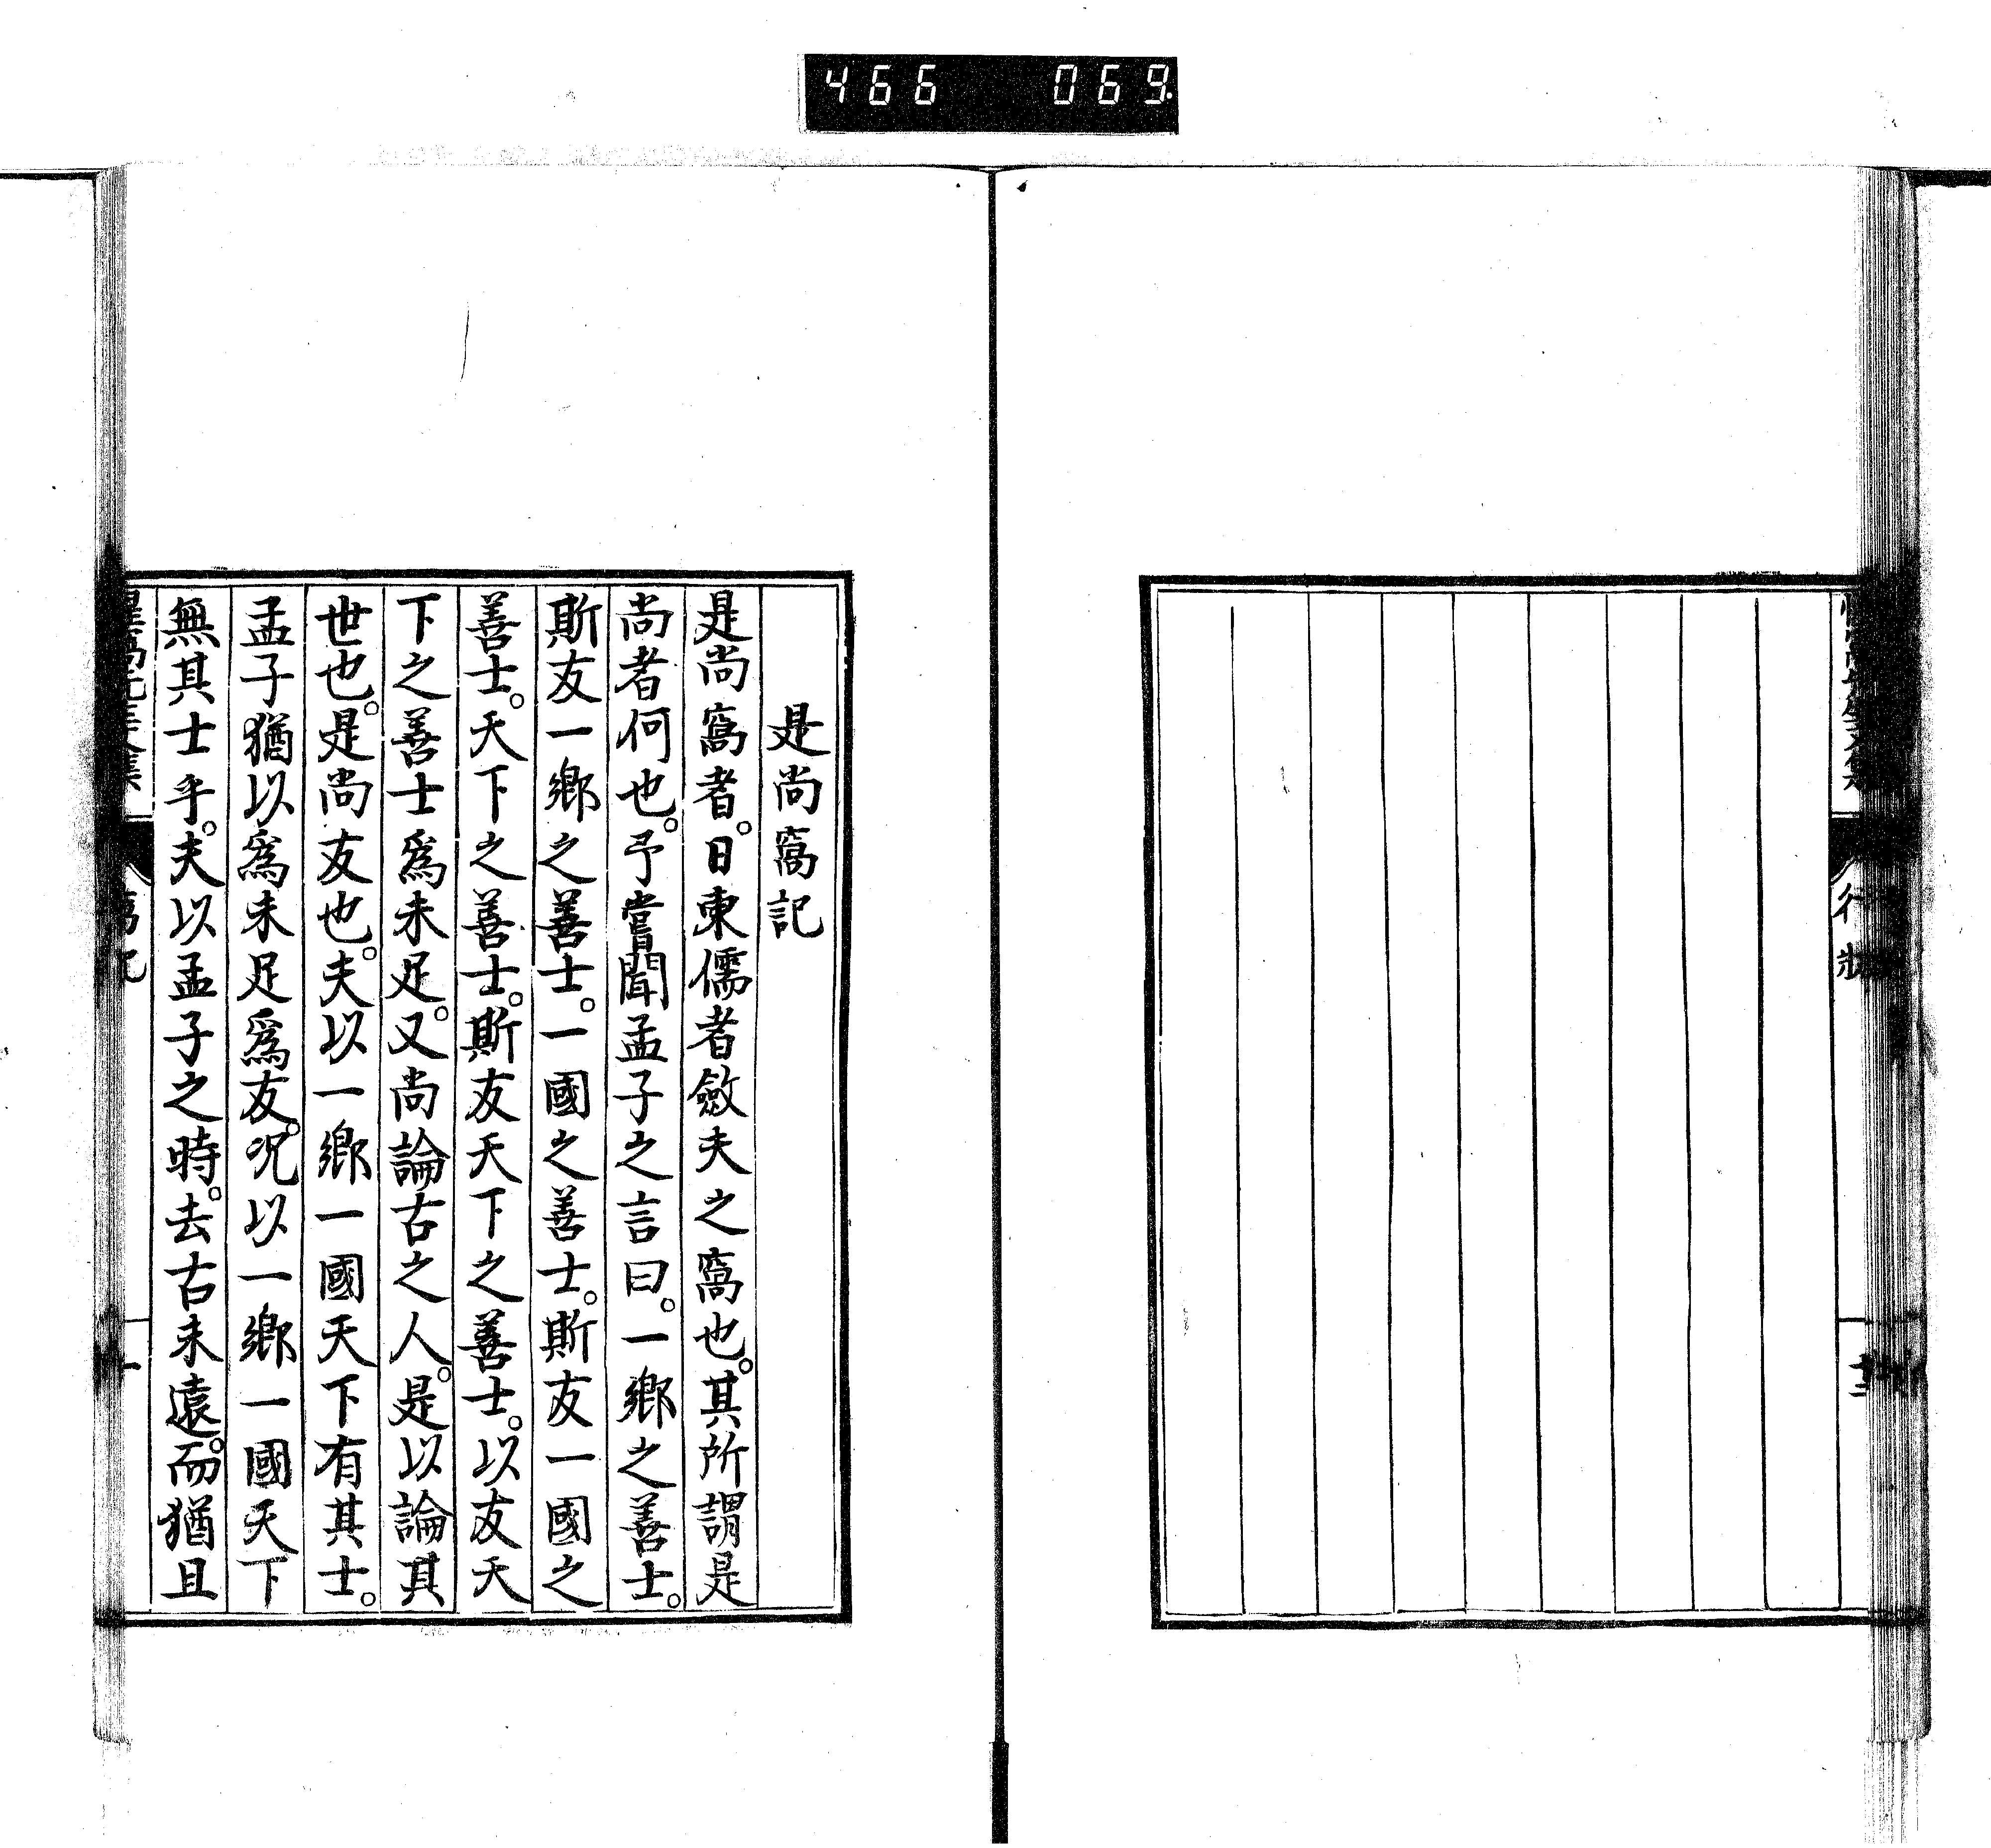 466 069
行狀
是尚窩記
是尚窩者。日東儒者斂夫之窩也。其所謂是
尚者何也。予嘗聞孟子之言曰。一鄉之善士。
斯友一鄉之善士。一國之善士。斯友一國之
善士。天下之善士。斯友天下之善士。以友天
下之善士爲未足。又尚論古之人。是以論其
世也。是尚友也。夫以一鄉一國天下有其士。
孟子猶以爲未足爲友。况以一鄉一國天下
無其士乎。夫以孟子之時。去古未遠。而猶且
窩記